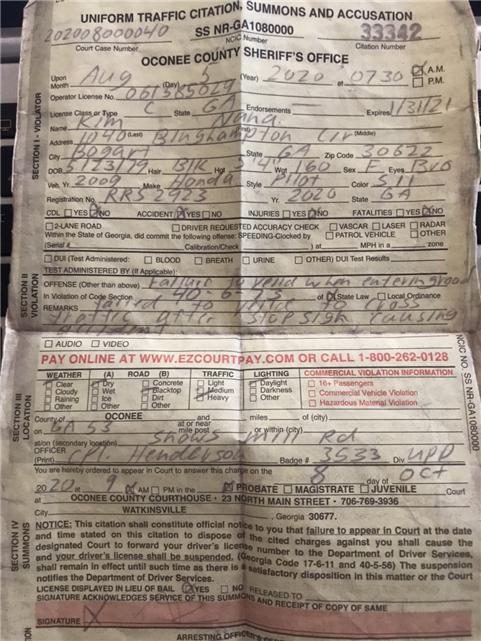 UNIFORM TRAFFIC CITATION, SUMMONS AND ACCUSATION
202008000040 SS NR-GA1080000 33342
Court Case Number NCIC Number Citation Number
OCONEE COUNTY SHERIFF'S OFFICE
Upon Month Aug (Day) 5 (Year) 2020 at 0730 A.M. P.M.
Operator License No. 061585029
License Class or Type C State GA Endorsements Expires 1/31/21
Name Kim Nana
(Last) (Middle)
Address 1040 Binghampton Cir
City Bogart State GA Zip Code 30622
DOB 5/23/79 Hair Blk Hgt 5'4" Wgt 160 Sex F Eyes Bro
Veh. Yr. 2009 Make Honda Style Pilot Color Sil
Registration No. RRS2923 Yr. 2020 State GA
CDL YES NO ACCIDENT YES NO INJURIES YES NO FATALITIES YES NO
2-LANE ROAD DRIVER REQUESTED ACCURACY CHECK VASCAR LASER RADAR
Within the State of Georgia, did commit the following offense: SPEEDING-Clocked by PATROL VEHICLE OTHER
(Serial # Calibration/Check ) at MPH in a zone
DUI (Test Administered: BLOOD BREATH URINE OTHER) DUI Test Results
TEST ADMINISTERED BY (If Applicable):
OFFENSE (Other than above) Failure to yield when entering road
In Violation of Code Section 40-6-73 of State Law Local Ordinance
REMARKS failed to yield to cross
traffic after stop sign causing
accident
SECTION I - VIOLATOR
SECTION II VIOLATION
AUDIO VIDEO
PAY ONLINE AT WWW.EZCOURTPAY.COM OR CALL 1-800-262-0128
WEATHER (A) ROAD (B) TRAFFIC LIGHTING COMMERCIAL VIOLATION INFORMATION
Clear Dry Concrete Light Daylight 16+ Passengers
Cloudy Wet Blacktop Medium Darkness Commercial Vehicle Violation
Raining Ice Dirt Heavy Other Hazardous Material Violation
Other Other Other
NCIC NO. SS NR-GA1080000
SECTION III LOCATION
County of OCONEE and miles of (city)
on GA 53 at or near mile post or within (city)
at/on (secondary location) Snows Mill Rd
OFFICER
(Print) Cpl. Henderson Badge # 3533 Div. UPD
You are hereby ordered to appear in Court to answer this charge on the 8 day of Oct
2020 at 9 AM PM in the PROBATE MAGISTRATE JUVENILE Court
at OCONEE COUNTY COURTHOUSE • 23 NORTH MAIN STREET • 706-769-3936
City WATKINSVILLE , Georgia 30677.
SECTION IV SUMMONS
NOTICE: This citation shall constitute official notice to you that failure to appear in Court at the date
and time stated on this citation to dispose of the cited charges against you shall cause the
designated Court to forward your driver's license number to the Department of Driver Services,
and your driver's license shall be suspended. (Georgia Code 17-6-11 and 40-5-56) The suspension
shall remain in effect until such time as there is a satisfactory disposition in this matter or the Court
notifies the Department of Driver Services.
LICENSE DISPLAYED IN LIEU OF BAIL YES NO RELEASED TO
SIGNATURE ACKNOWLEDGES SERVICE OF THIS SUMMONS AND RECEIPT OF COPY OF SAME
SIGNATURE X
ARRESTING OFFICER'S